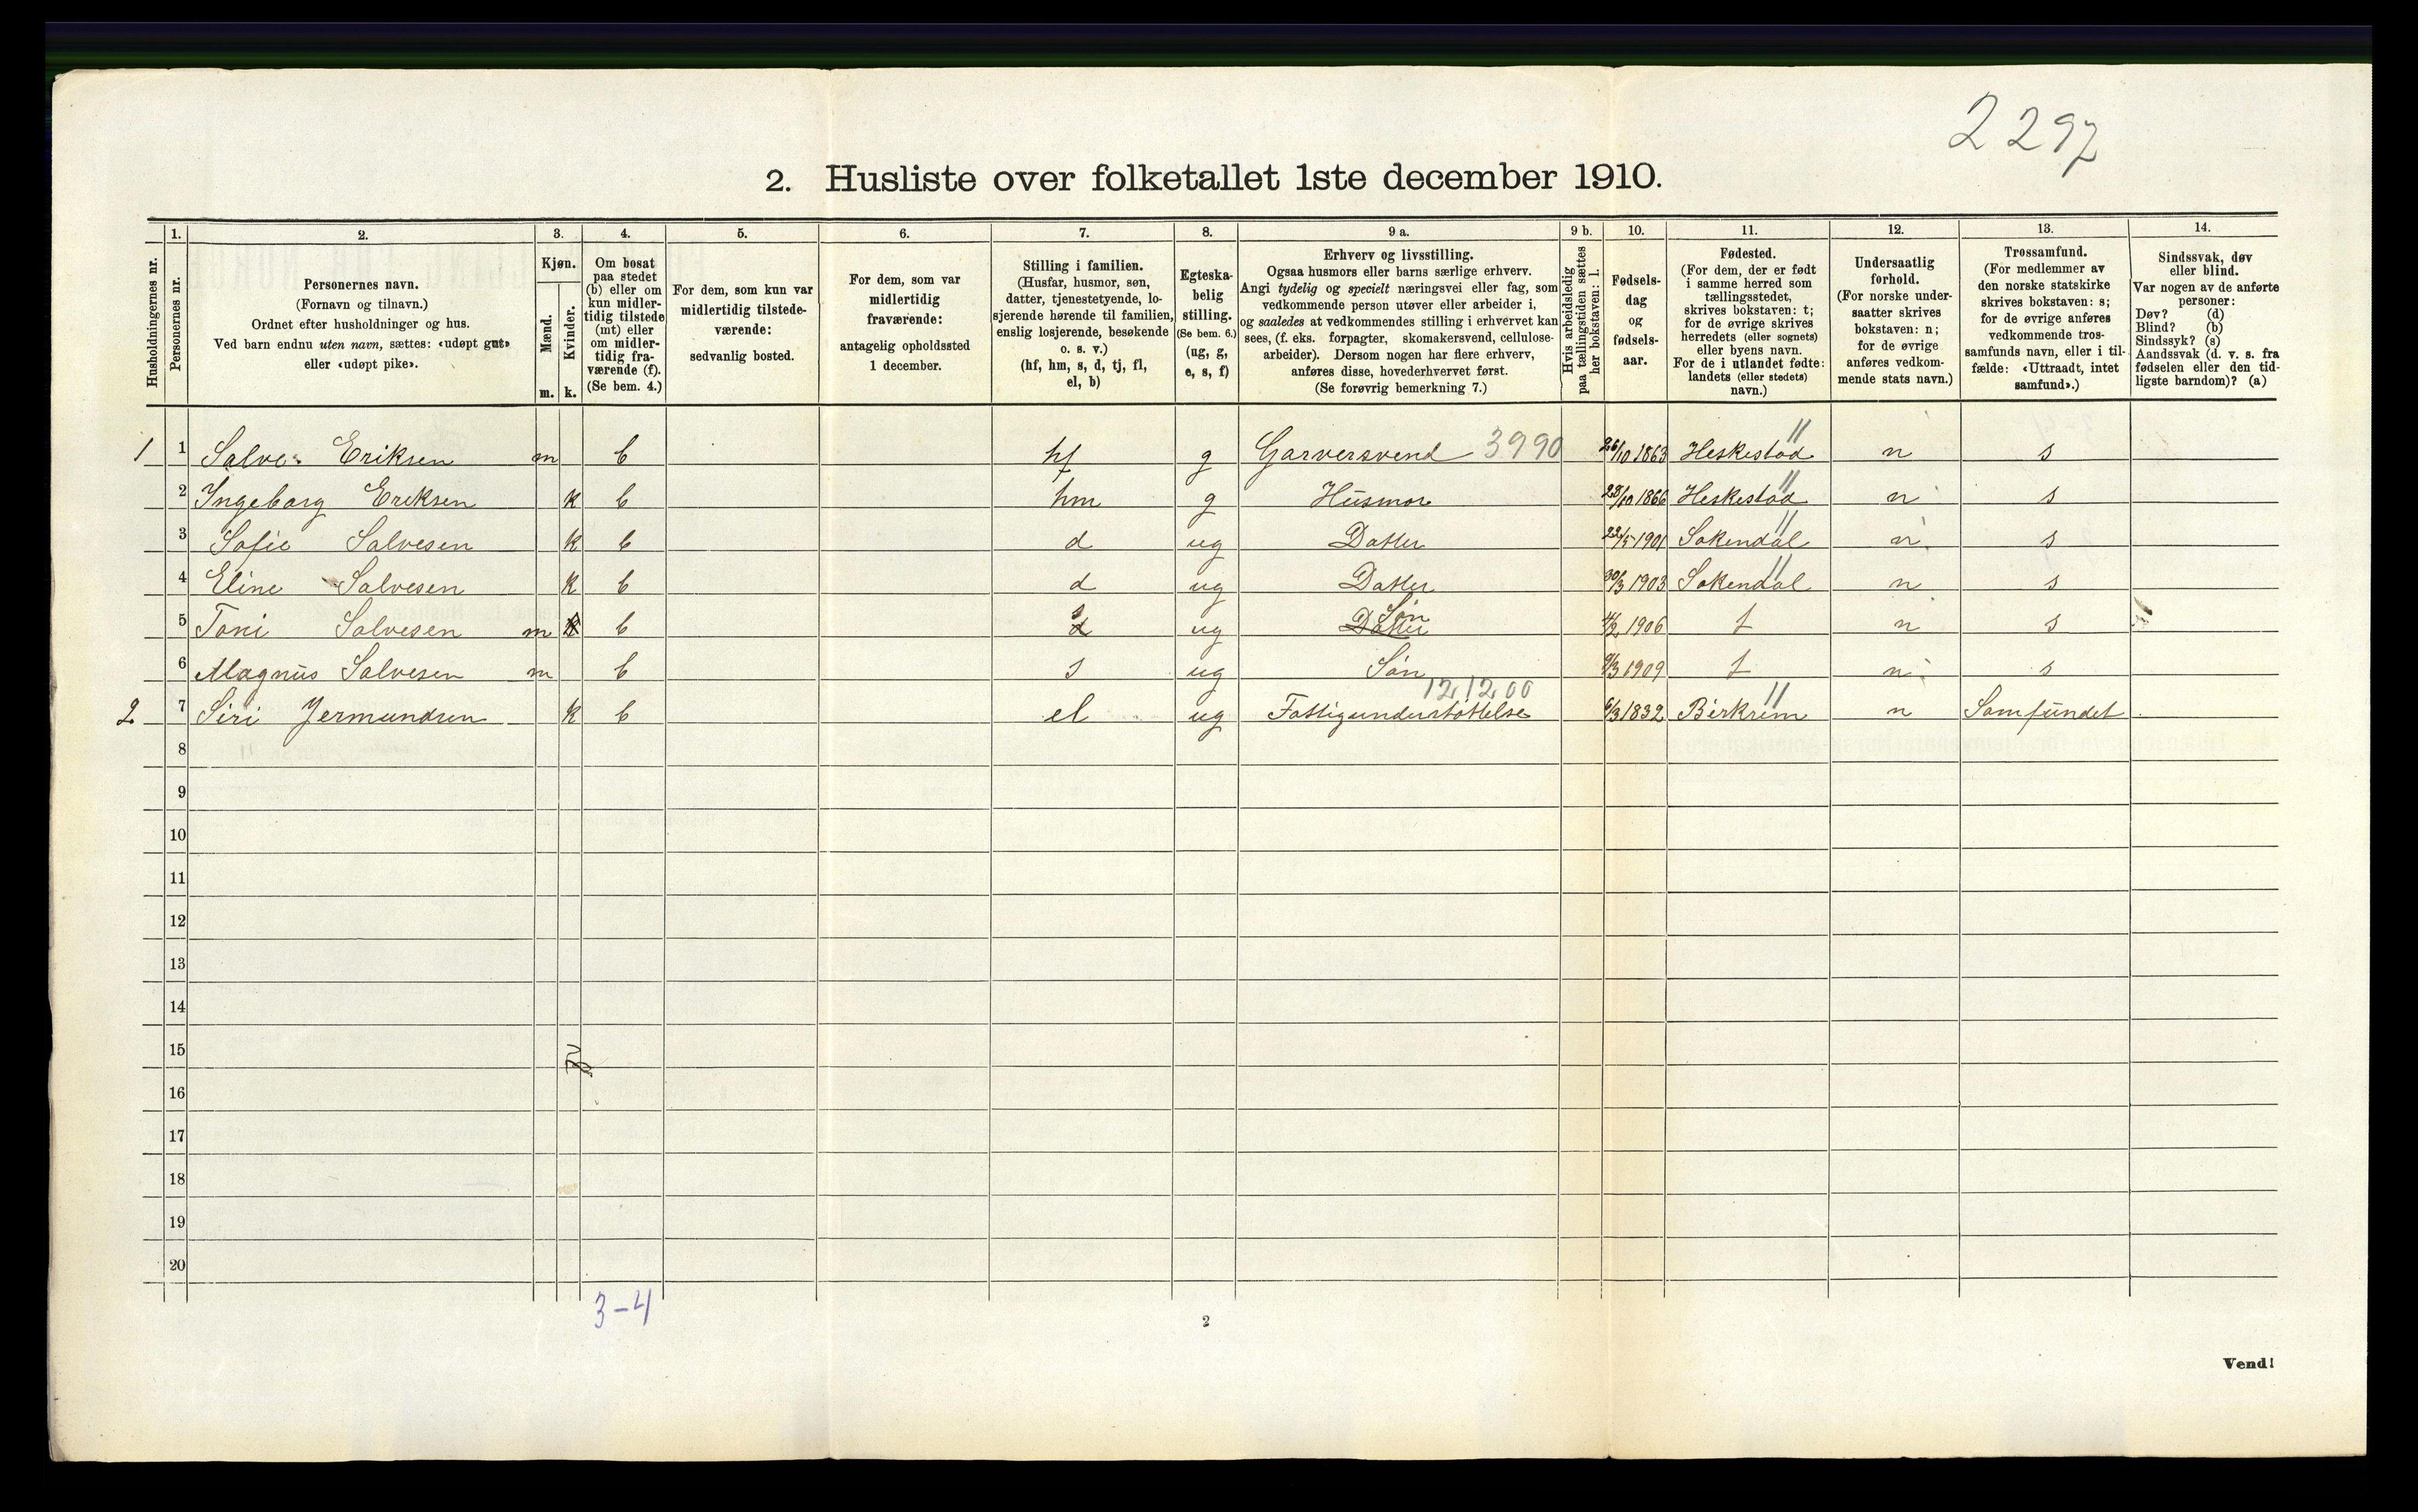 2297
2. Husliste over folketallet 1ste december 1910.
Husholdningernes nr.
1. Personernes nr.
2. Personernes navn.
(Fornavn og tilnavn.)
Ordnet efter husholdninger og hus.
Ved barn endnu uten navn, sættes: «udøpt gut»
eller «udøpt pike».
3. Kjøn.
Mænd. m.
Kvinder. k.
4. Om bosat
paa stedet
(b) eller om
kun midler-
tidig tilstede
(mt) eller
om midler-
tidig fra-
værende (f).
(Se bem. 4.)
5. For dem, som kun var
midlertidig tilstede-
værende:
sedvanlig bosted.
6. For dem, som var
midlertidig
fraværende:
antagelig opholdssted
1 december.
7. Stilling i familien.
(Husfar, husmor, søn,
datter, tjenestetyende, lo-
sjerende hørende til familien,
enslig losjerende, besøkende
o. s. v.)
(hf, hm, s, d, tj, fl,
el, b)
8. Egteska-
belig
stilling.
(Se bem. 6.)
(ug, g,
e, s, f)
9 a. Erhverv og livsstilling.
Ogsaa husmors eller barns særlige erhverv.
Angi tydelig og specielt næringsvei eller fag, som
vedkommende person utøver eller arbeider i,
og saaledes at vedkommendes stilling i erhvervet kan
sees, (f. eks. forpagter, skomakersvend, cellulose-
arbeider). Dersom nogen har flere erhverv,
anføres disse, hovederhvervet først.
(Se forøvrig bemerkning 7.)
9 b. Hvis arbeidsledig
paa tællingstiden sættes
her bokstaven: l.
10. Fødsels-
dag
og
fødsels-
aar.
11. Fødested.
(For dem, der er født
i samme herred som
tællingsstedet,
skrives bokstaven: t;
for de øvrige skrives
herredets (eller sognets)
eller byens navn.
For de i utlandet fødte:
landets (eller stedets)
navn.)
12. Undersaatlig
forhold.
(For norske under-
saatter skrives
bokstaven: n;
for de øvrige
anføres vedkom-
mende stats navn.)
13. Trossamfund.
(For medlemmer av
den norske statskirke
skrives bokstaven: s;
for de øvrige anføres
vedkommende tros-
samfunds navn, eller i til-
fælde: «Uttraadt, intet
samfund».)
14. Sindssvak, døv
eller blind.
Var nogen av de anførte
personer:
Døv? (d)
Blind? (b)
Sindssyk? (s)
Aandssvak (d. v. s. fra
fødselen eller den tid-
ligste barndom)? (a)
1 1 Salve Eriksen m b hf g Garversvend 3990 26/10 1863 Heskestad 11 n s
2 Ingeborg Eriksen k b hm g Husmor 28/10 1866 Heskestad 11 n s
3 Sofie Salvesen k b d ug Datter 22/5 1901 Sokendal 11 n s
4 Eline Salvesen k b d ug Datter 30/3 1903 Sokendal 11 n s
5 Toni Salvesen m k b s ug Datter Søn 1906 t n s
6 Magnus Salvesen m b s ug Søn 9/3 1909 t n s
12,12,00
2 7 Siri Jermundsen k b el ug Fattigunderstøttelse 6/3 1832 Birkrem 11 n Samfundet
8
9
10
11
12
13
14
15
16
17
18
19
20
3-4
2
Vend!